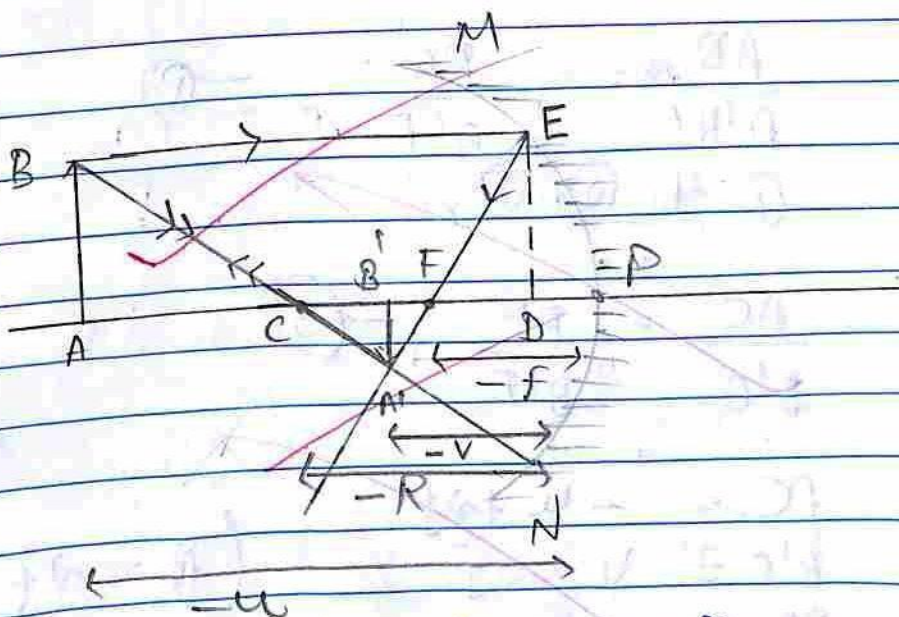 M
B E
B' F P
A C D
-f
A'
-v
-R
N
-u